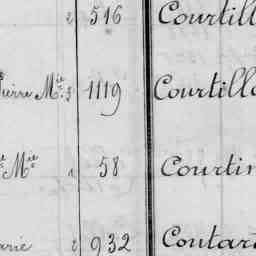 2 516 Courtill
Pierre Mie 3 1119 Courtillo
Mie 1 58 Courtin
arie 2 932 Coutar